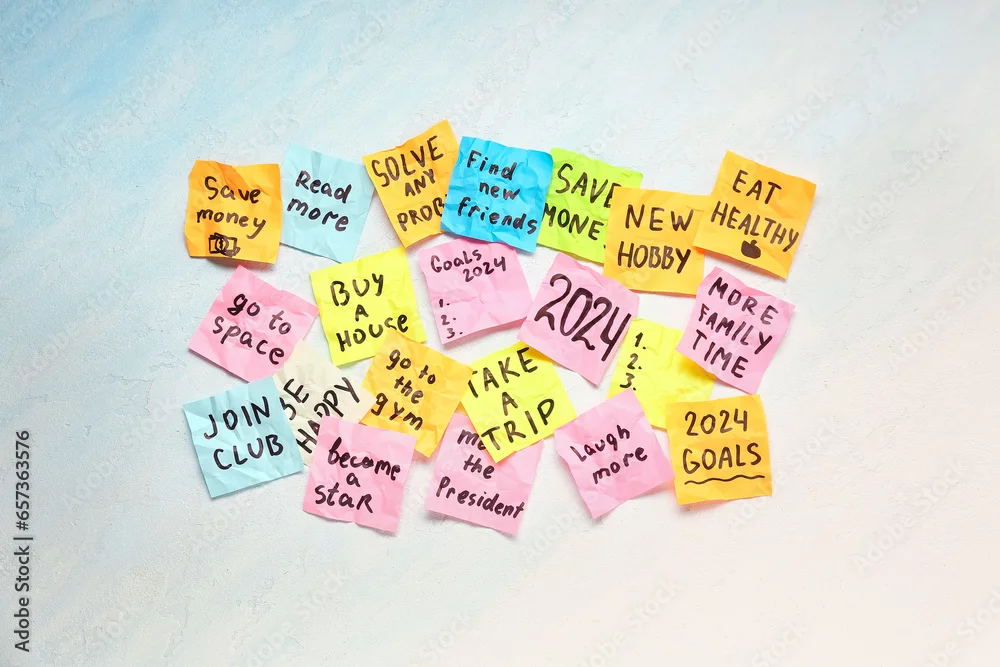 Save
money
Read
more
SOLVE
ANY
PROB
Find
new
friends
SAVE
MONE
NEW
HOBBY
EAT
HEALTHY
go to
space
BUY
A
HOUSE
Goals
2024
1.
2.
3.
2024
1.
2.
3.
MORE
FAMILY
TIME
JOIN
CLUB
BE
HAPPY
go to
the
gym
TAKE
A
TRIP
become
a
staR
me
the
President
Laugh
more
2024
GOALS
Adobe Stock | #657363576